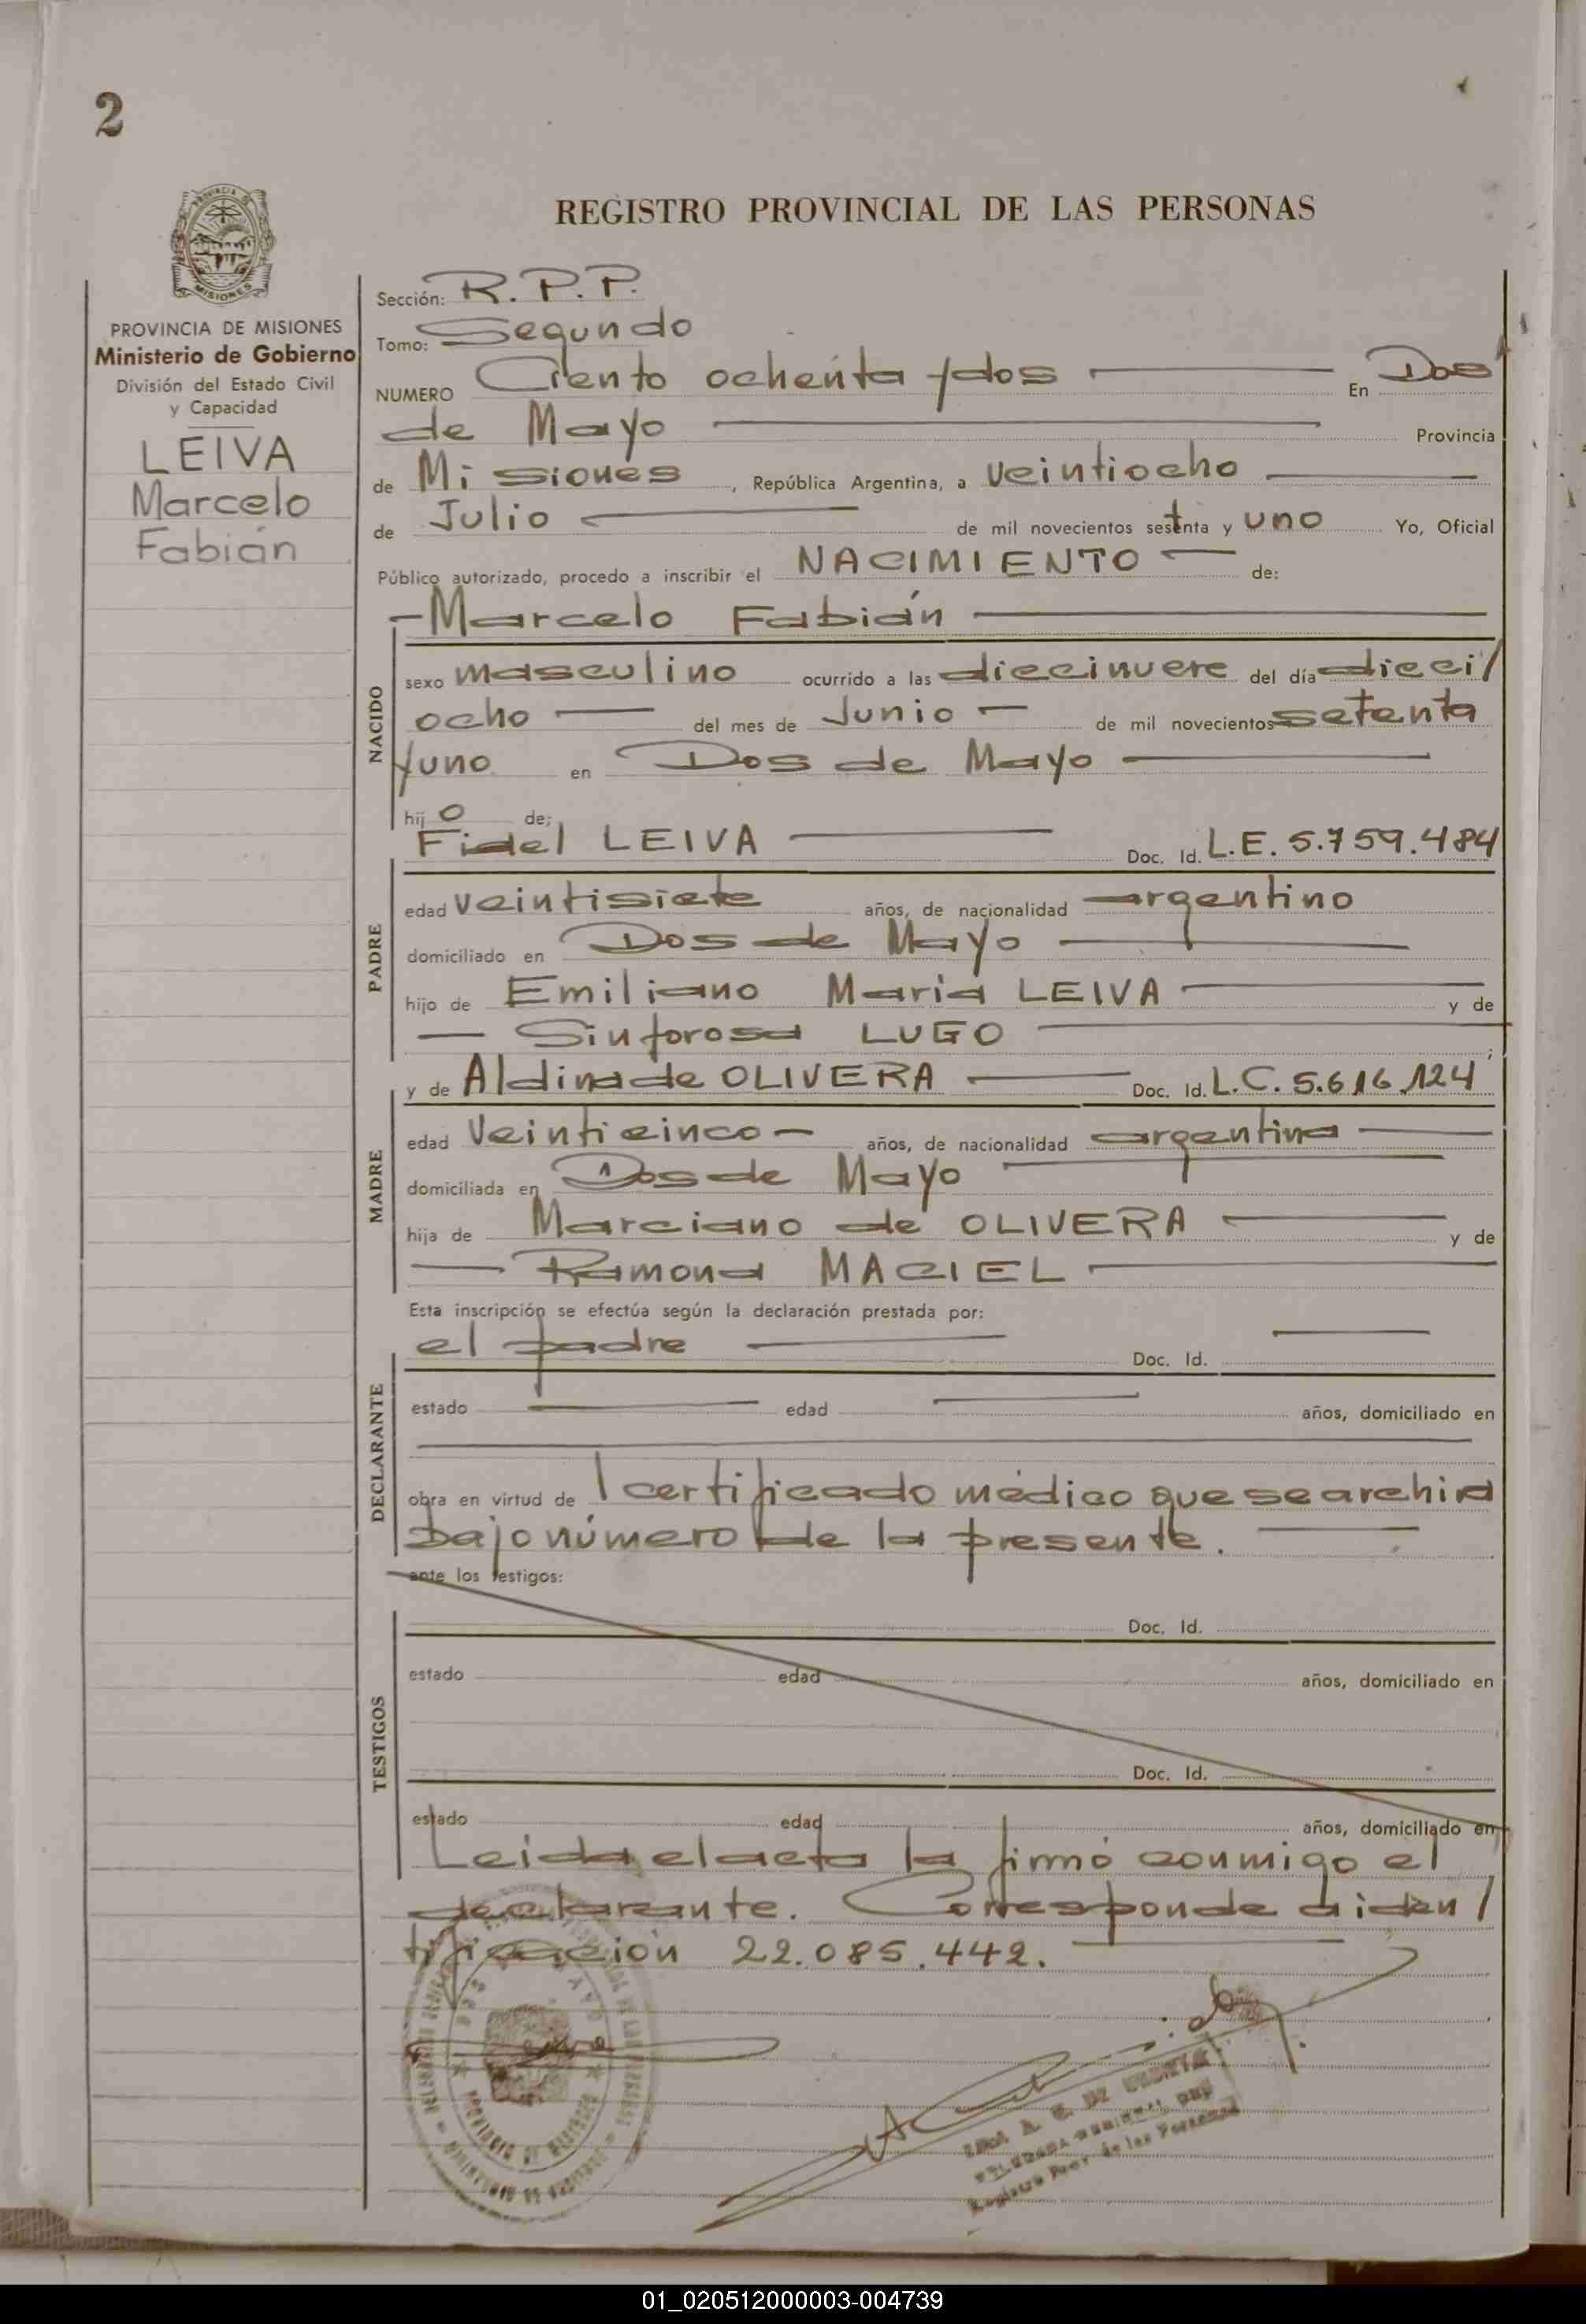 2
REGISTRO PROVINCIAL DE LAS PERSONAS
MISIONES
PROVINCIA DE MISIONES
Ministerio de Gobierno
División del Estado Civil
y Capacidad
LEIVA
Marcelo
Fabián
Sección: R.P.P.
Tomo: Segundo
NUMERO Ciento ochenta y dos En Dos
de Mayo Provincia
de Misiones, República Argentina, a veintiocho
de Julio de mil novecientos setenta y uno Yo, Oficial
Público autorizado, procedo a inscribir el NACIMIENTO de:
Marcelo Fabián
NACIDO
sexo masculino ocurrido a las diecinueve del día dieci/
ocho del mes de Junio de mil novecientos setenta
y uno en Dos de Mayo
hij o de:
Fidel LEIVA Doc. Id. L.E. 5.759.484
PADRE
edad veintisiete años, de nacionalidad argentino
domiciliado en Dos de Mayo
hijo de Emiliano Maria LEIVA y de
Sinforosa LUGO ;
y de Aldina de OLIVERA Doc. Id. L.C. 5.616.124
MADRE
edad Veinticinco años, de nacionalidad argentina
domiciliada en Dos de Mayo
hija de Marciano de OLIVERA y de
Ramona MACIEL
Esta inscripción se efectúa según la declaración prestada por:
el padre Doc. Id.
DECLARANTE
estado edad años, domiciliado en
obra en virtud de l certificado médico que se archiva
bajo número de la presente.
ante los testigos:
Doc. Id.
TESTIGOS
estado edad años, domiciliado en
Doc. Id.
estado edad años, domiciliado en
Leida el acta la firmó conmigo el
declarante. Corresponde a iden/
tificación 22.085.442.
DOS DE MAYO
PROVINCIA DE MISIONES
Registro Prov. de las Personas
01_020512000003-004739